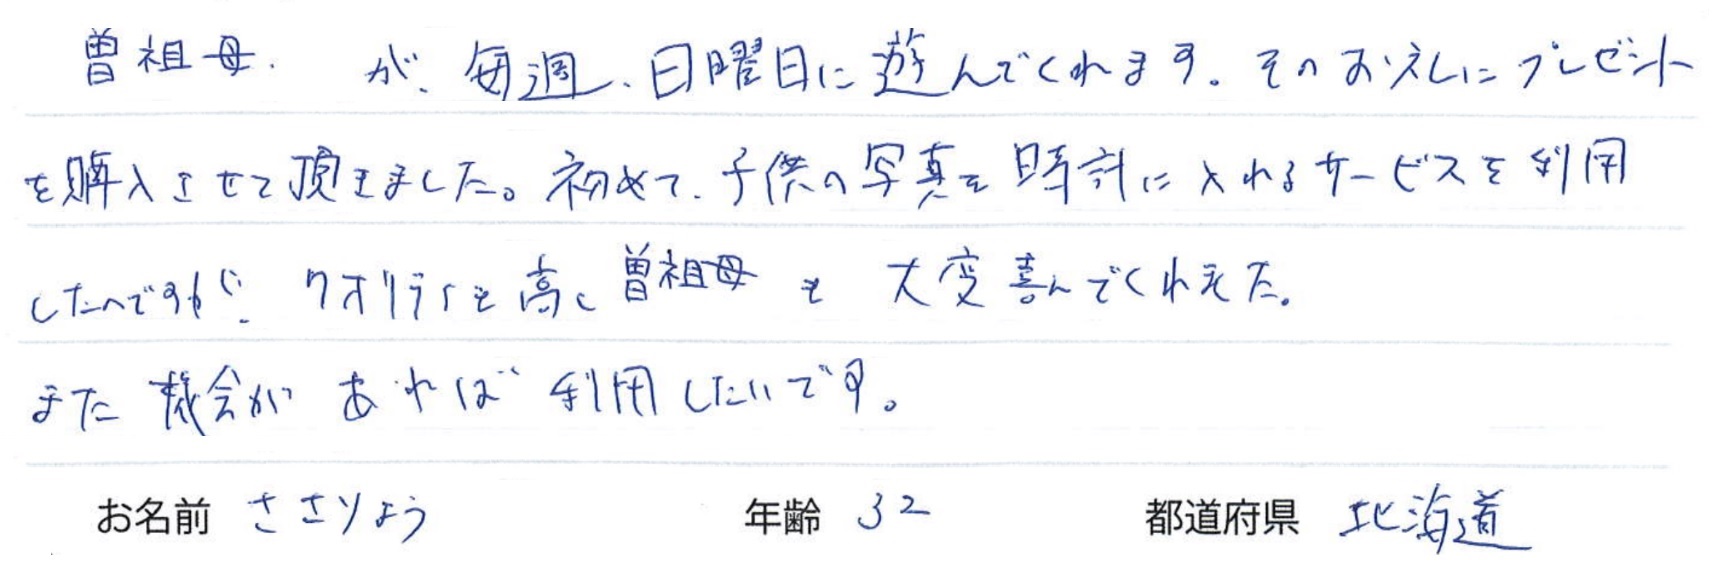 曽祖母が、毎週、日曜日に遊んでくれます。そのおかえしにプレゼント
を購入させて頂きました。初めて、子供の写真を時計に入れるサービスを利用
したのですが、クオリティも高く曽祖母も大変喜んでくれました。
また機会があれば利用したいです。
お名前 ささりょう 年齢 32 都道府県 北海道